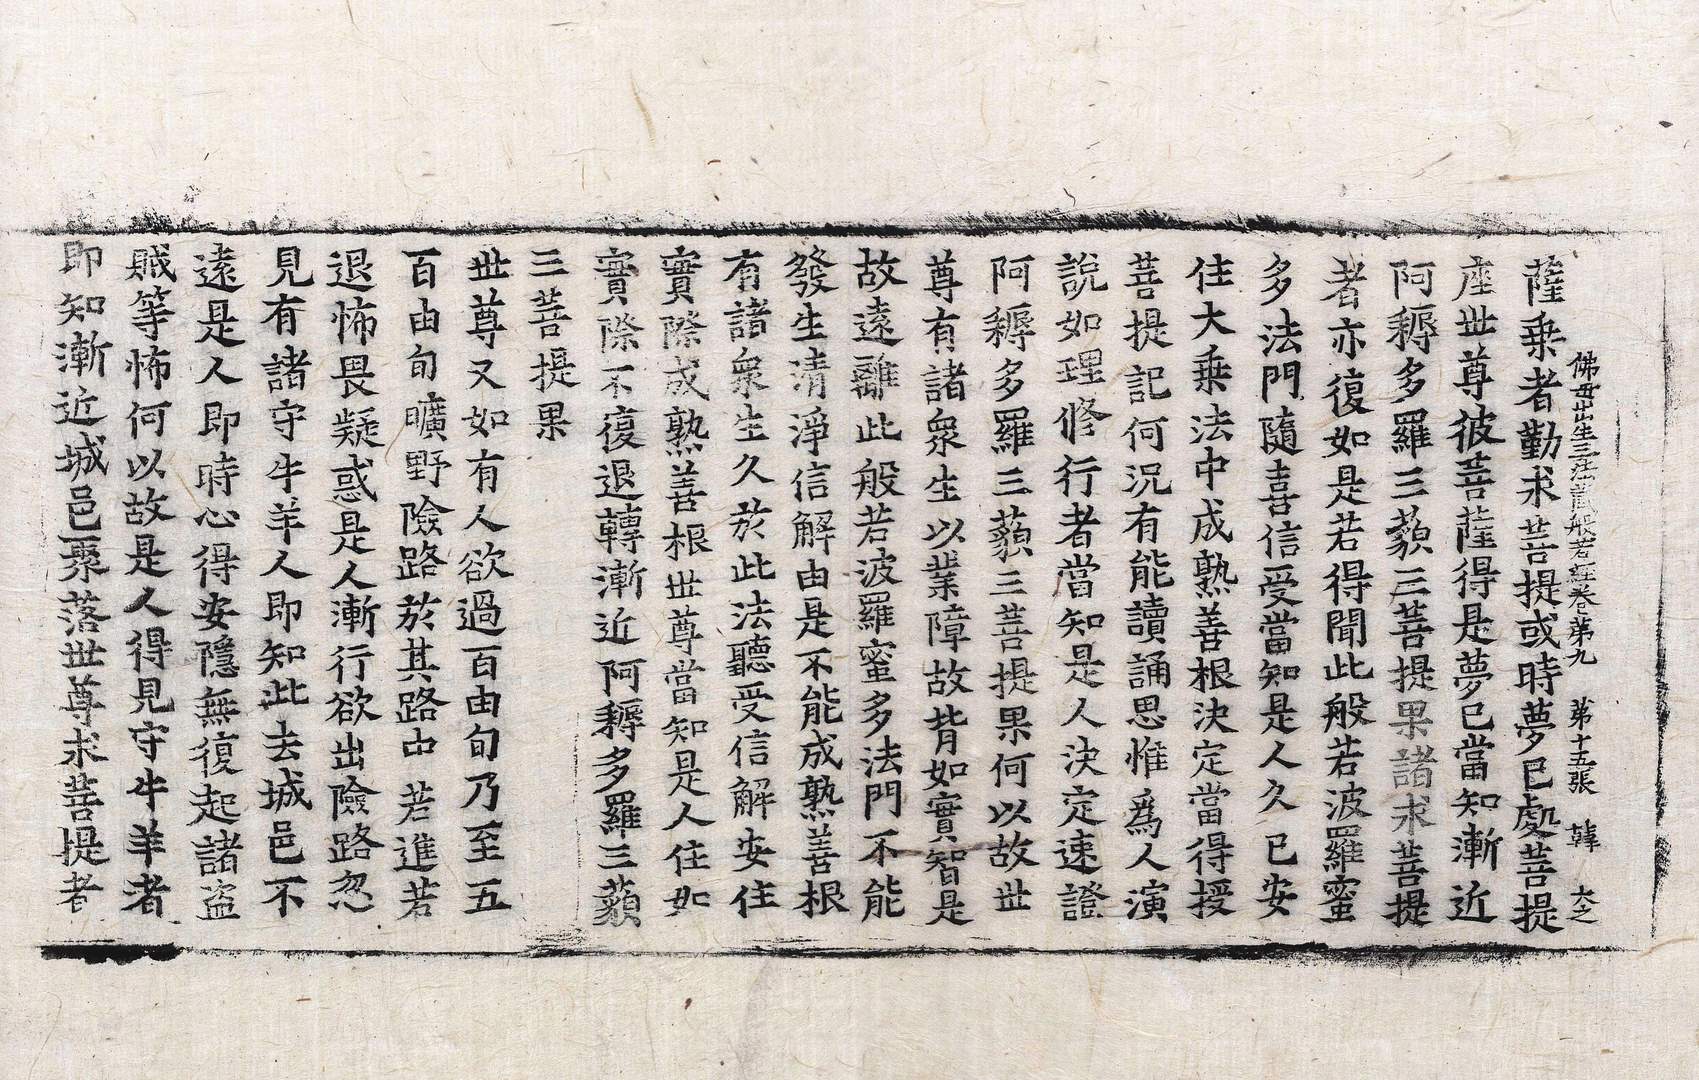 佛母出生三法藏般若經卷第九 第十五張 韓 大之
薩乘者勤求菩提或時夢已處菩提
座世尊彼菩薩得是夢已當知漸近
阿耨多羅三藐三菩提果諸求菩提
者亦復如是若得聞此般若波羅蜜
多法門隨喜信受當知是人久已安
住大乘法中成熟善根決定當得授
菩提記何況有能讀誦思惟爲人演
說如理修行者當知是人決定速證
阿耨多羅三藐三菩提果何以故世
尊有諸衆生以業障故背如實智是
故遠離此般若波羅蜜多法門不能
發生清淨信解由是不能成熟善根
有諸衆生久於此法聽受信解安住
實際成熟善根世尊當知是人住如
實際不復退轉漸近阿耨多羅三藐
三菩提果
世尊又如有人欲過百由旬乃至五
百由旬曠野險路於其路中若進若
退怖畏疑惑是人漸行欲出險路忽
見有諸守牛羊人即知此去城邑不
遠是人即時心得安隱無復起諸盜
賊等怖何以故是人得見守牛羊者
即知漸近城邑聚落世尊求菩提者